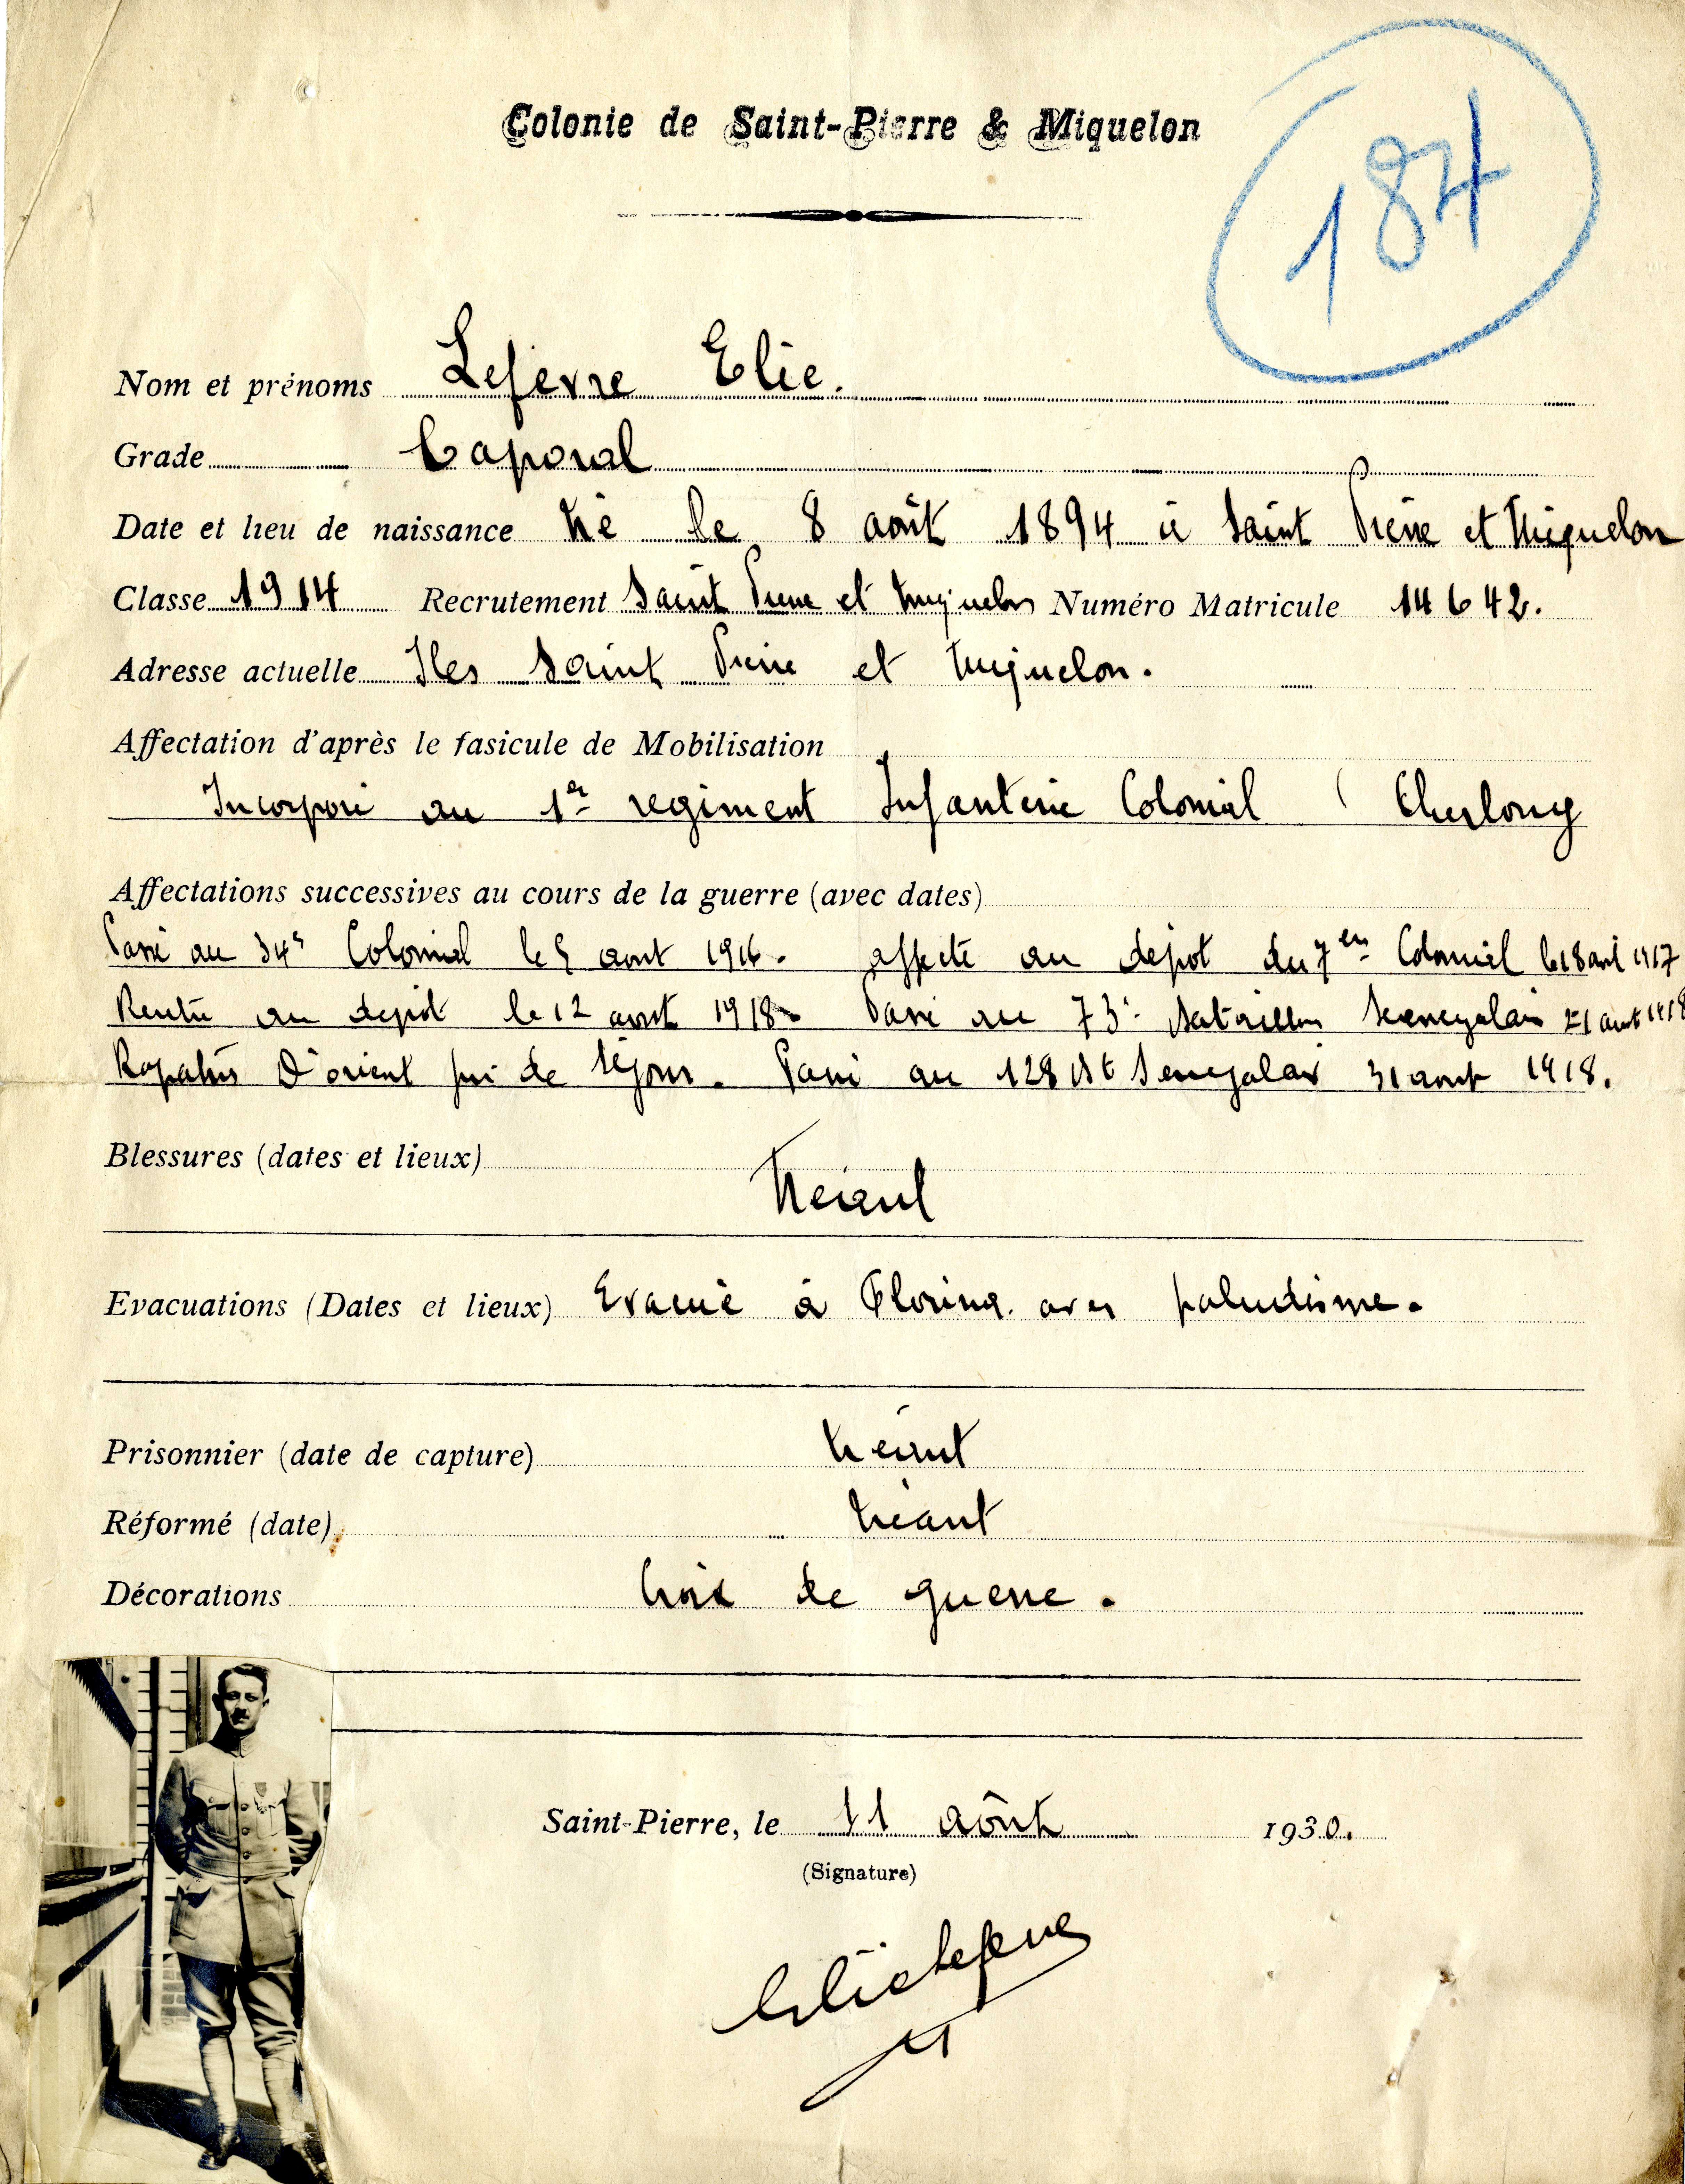 Colonie de Saint-Pierre & Miquelon
184
Nom et prénoms Lefevre Elie.
Grade Caporal
Date et lieu de naissance Né le 8 août 1894 à Saint Pierre et Miquelon
Classe 1914 Recrutement Saint Pierre et Miquelon Numéro Matricule 14642.
Adresse actuelle Iles Saint Pierre et Miquelon.
Affectation d'après le fasicule de Mobilisation
Incorporé au 1er regiment Infanterie Colonial (
Affectations successives au cours de la guerre (avec dates)
Passé au 34e Colonial le 5 aout 1916. affecté au depot du 7em Colonial le 18 1917
Rentré au depot le 12 aout 1918. Passé au 73e Bataillon Senegalais 21 aout 1918
Rapatriés D'orient de séjour. Passé au 128 Bt Senegalais 31 aout 1918.
Blessures (dates et lieux)
Néant
Evacuations (Dates et lieux) Evacué à Florina. avec paludisme.
Prisonnier (date de capture) Néant
Réformé (date) Néant
Décorations Croix de guerre.
Saint-Pierre, le 11 août 1930.
(Signature)
Elie Lefevre